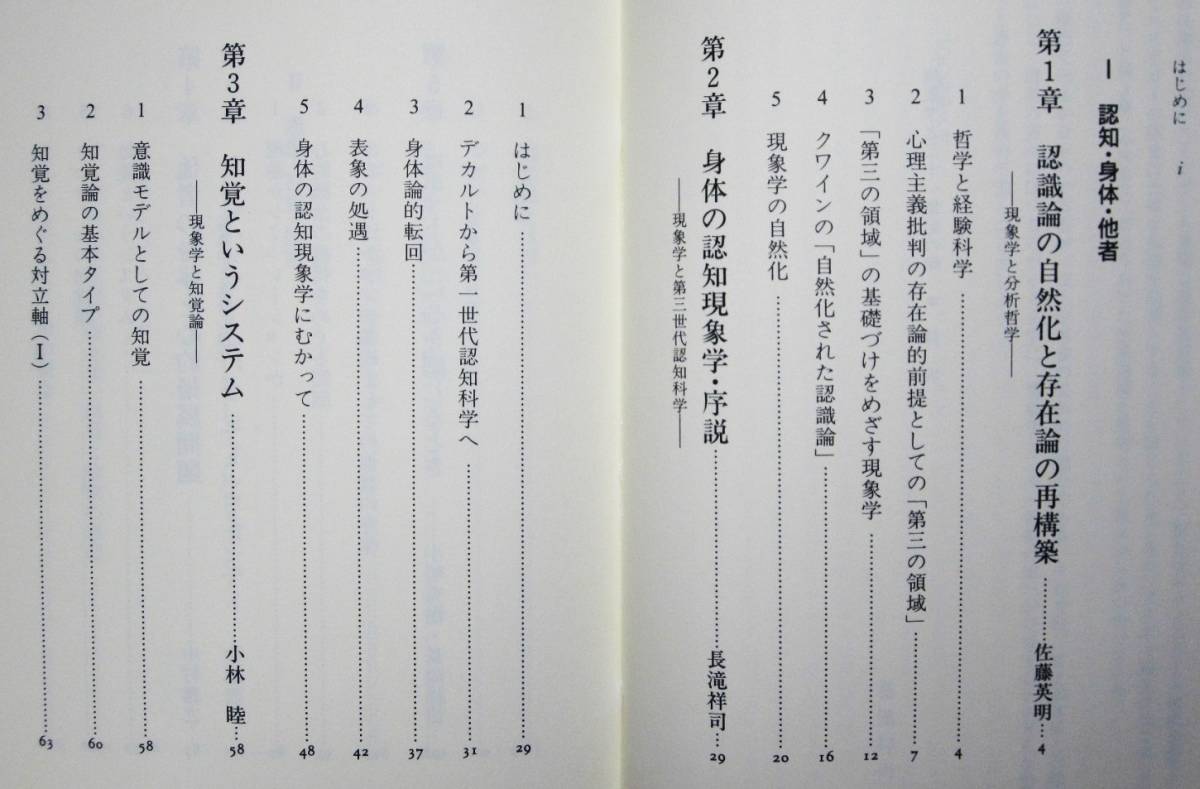 はじめに i
I 認知・身体・他者
第1章 認識論の自然化と存在論の再構築 ………… 佐藤英明 … 4
――現象学と分析哲学――
1 哲学と経験科学 ………… 4
2 心理主義批判の存在論的前提としての「第三の領域」 ………… 7
3 「第三の領域」の基礎づけをめざす現象学 ………… 12
4 クワインの「自然化された認識論」 ………… 16
5 現象学の自然化 ………… 20
第2章 身体の認知現象学・序説 ………… 長滝祥司 … 29
――現象学と第三世代認知科学――
1 はじめに ………… 29
2 デカルトから第一世代認知科学へ ………… 31
3 身体論的転回 ………… 37
4 表象の処遇 ………… 42
5 身体の認知現象学にむかって ………… 48
第3章 知覚というシステム ………… 小林 睦 … 58
――現象学と知覚論――
1 意識モデルとしての知覚 ………… 58
2 知覚論の基本タイプ ………… 60
3 知覚をめぐる対立軸(I) ………… 63